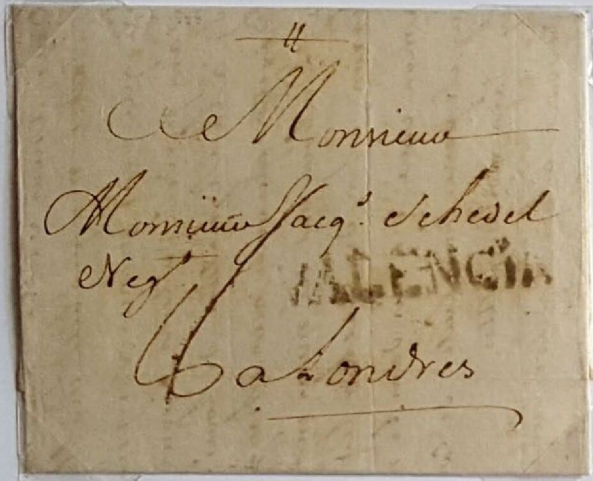 A Monsieur
Monsieur Jacq.s Schedel
Neg.t
VALENCIA
a Londres